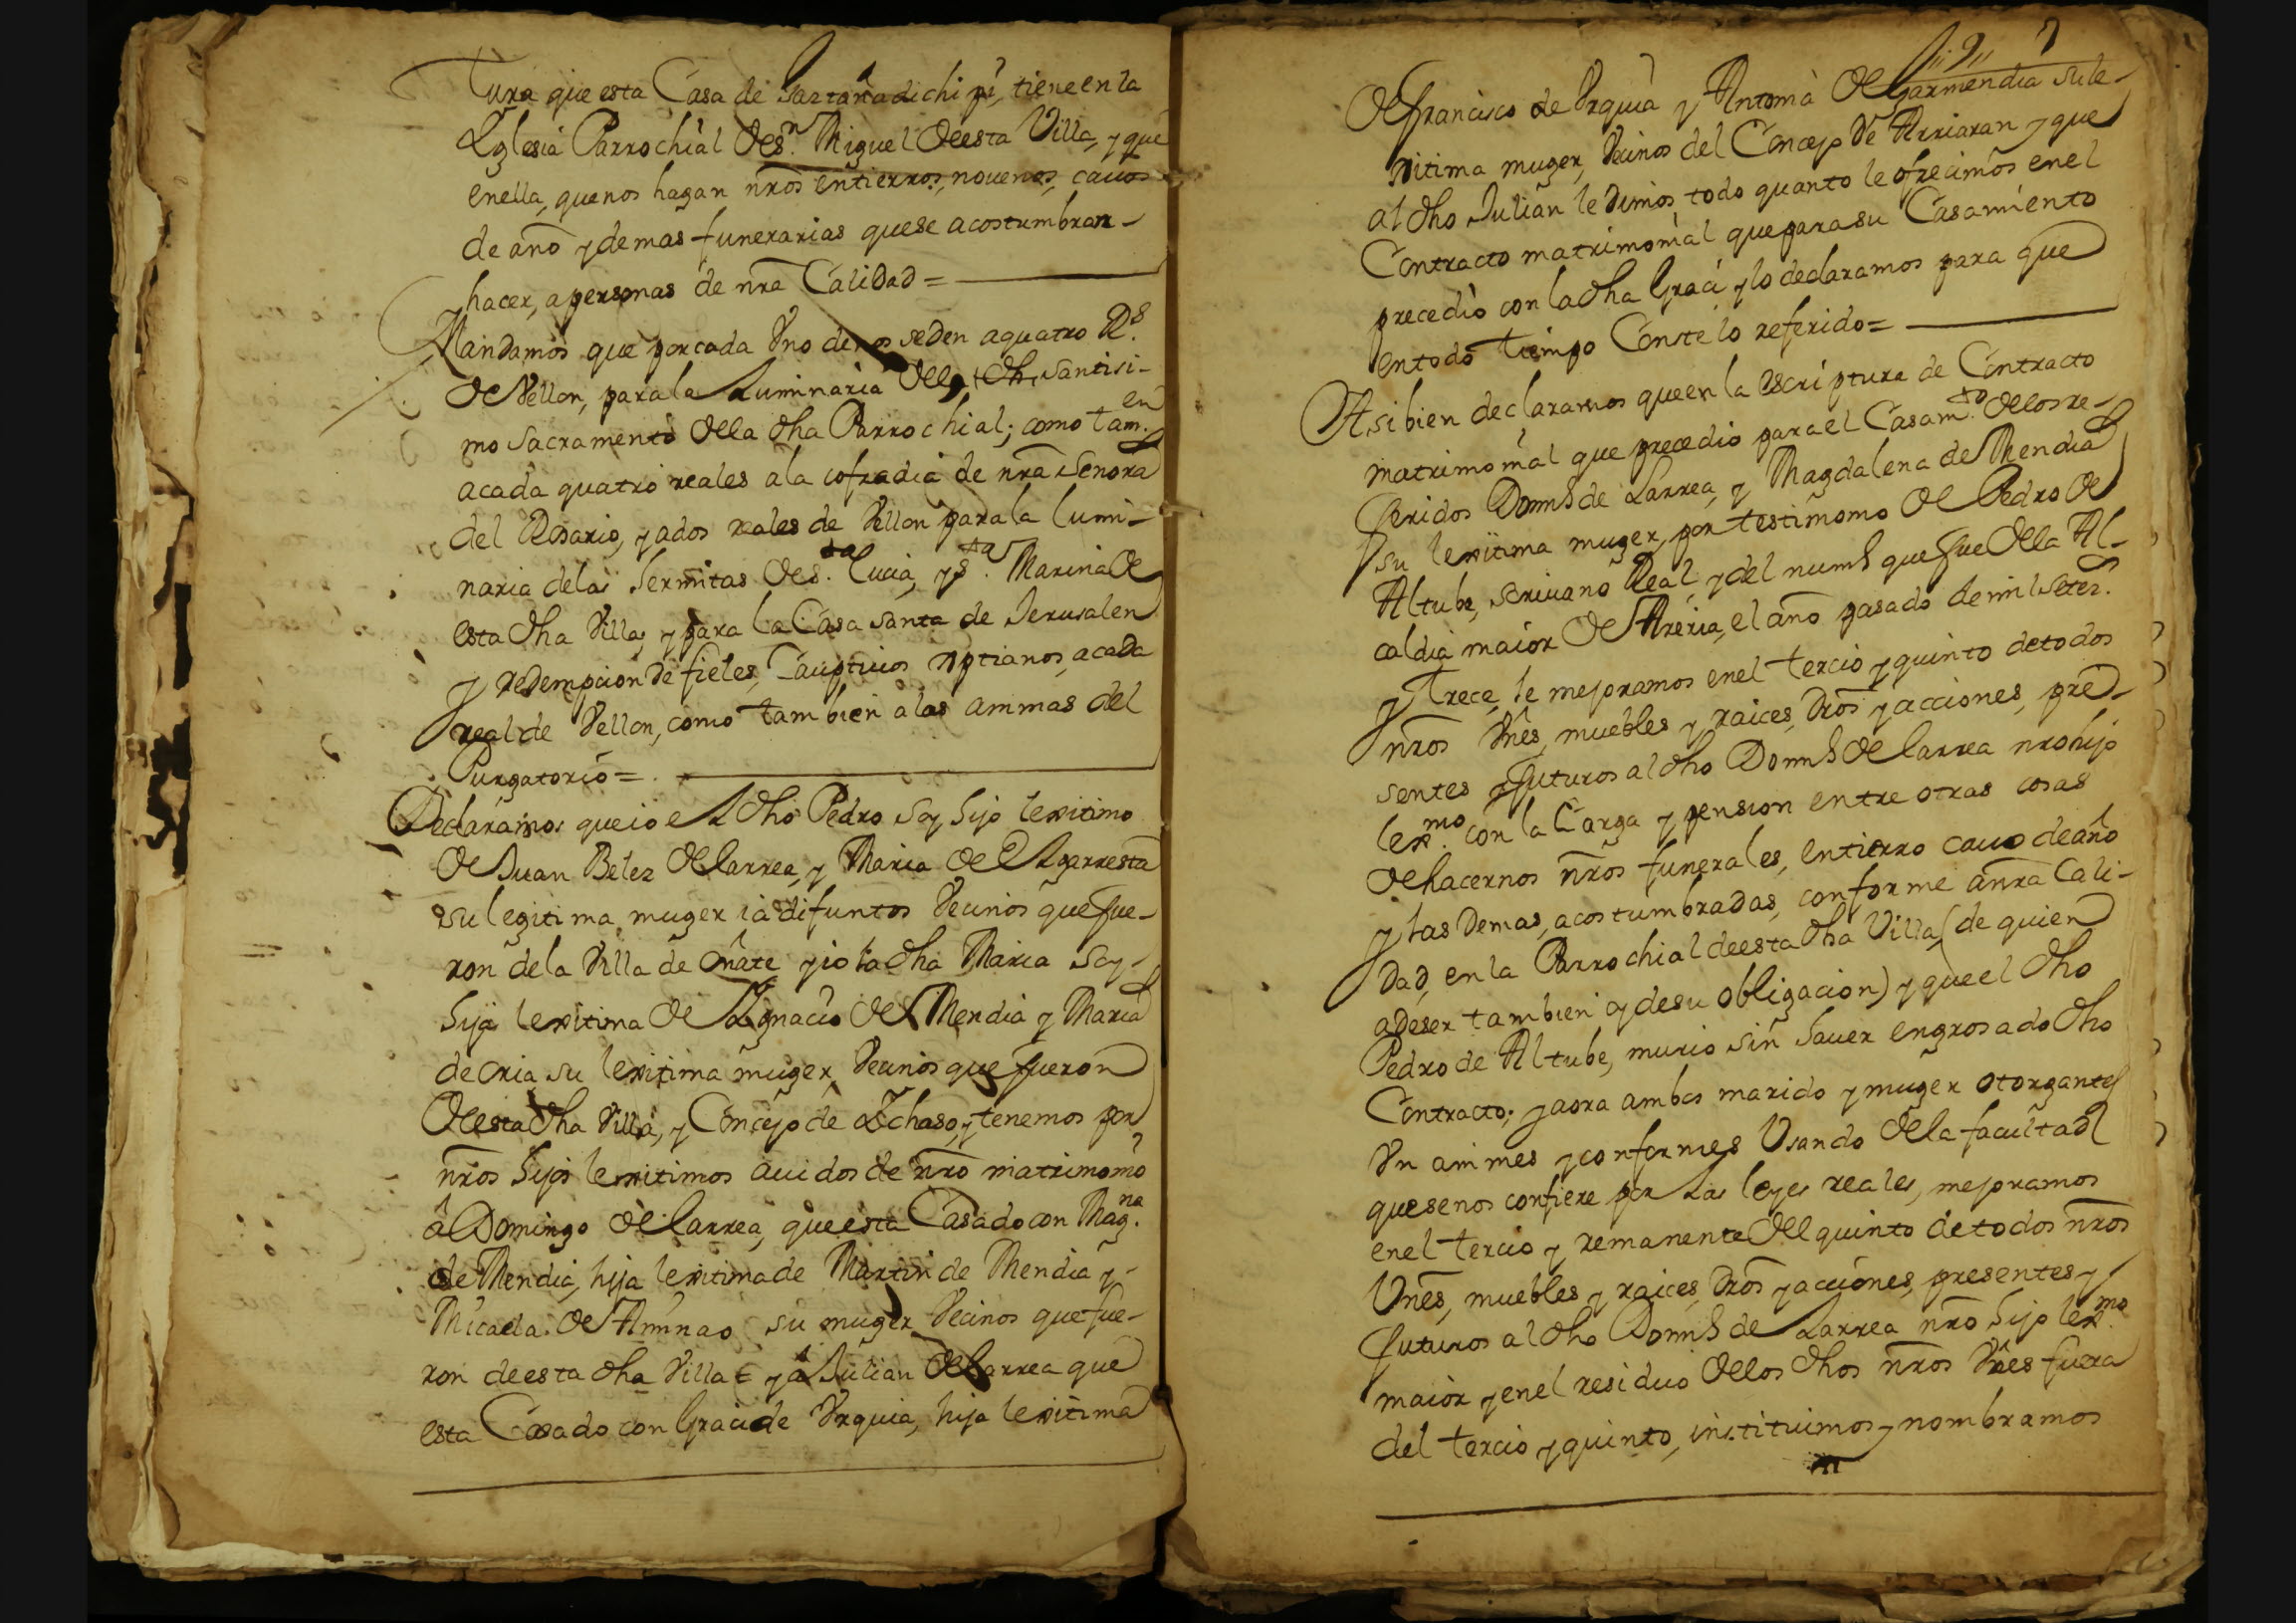 tura que esta Casa de tiene en la
Iglesia Parrochial de Sn. Miguel de esta Villa, y que
en ella, que nos hagan nros entierros, nouenos, cauos
de año y demas funerarias que se acostumbran
hacer, a personas de nra Calidad =
Mandamos que por cada Vno de nos se den a quatro Rs.
de Vellon, para la Luminaria del Santisi-
mo Sacramento de la dha Parrochial; como tamen.
a cada quatro reales a la cofradia de nra Señora
del Rosario, y a dos reales de Vellon para la lumi-
naria de las hermitas de Sta. Lucia, y Sta. Marina de
esta dha Villa, y para la Casa Santa de Jerusalen
y redempcion de fieles Cauptiuos xptianos, a cada
real de Vellon, como tambien a las animas del
Purgatorio =
Declaramos que io el dho Pedro soy hijo lexitimo
de Juan Belez de Larrea, y Maria de Elgarresta
su legitima muger ia difuntos Vecinos que fue-
ron de la Villa de Oñate y io la dha Maria soy
hija lexitima de Ignacio de Mendia y Maria
de Oria su lexitima muger, Vecinos que fueron
de esta dha Villa, y Concejo de Ichaso, y tenemos por
nros hijos lexitimos auidos de nro matrimonio
â Domingo de Larrea, que esta Casado con Magna.
de Mendia, hija lexitima de Martin de Mendia y
Micaela de su muger Vecinos que fue-
ron de esta dha Villa = y â Julian de Larrea que
esta Casado con Gracia de Vrquia, hija lexitima
de Francisco de Vrquia y Antonia de Garmendia su le-
xitima muger, Vecinos del Concejo de Arriaran y que
al dho Julian le dimos todo quanto le ofrecimos en el
Contracto matrimonial que para su Casamiento
precediò con la dha Graci y lo declaramos para que
en todo tiempo Conste lo referido =
Asi bien declaramos que en la escriptura de Contracto
matrimonial que precedio para el Casamto. de los re-
feridos Domo de Larrea, y Magdalena de Mendia
su lexitima muger, por testimonio de Pedro de
Altube, scriuano Real, y del numo que fue de la Al-
caldia maior de Areria, el año pasado de mil setez.
y trece, le mejoramos en el tercio y quinto de todos
nros Vnes, muebles y raices, dros y acciones, pre-
sentes y futuros al dho Domo de Larrea nro hijo
lexmo. con la Carga y pension entre otras cosas
de hacernos nros funerales, entierro cauo de año
y las demas, acostumbradas, conforme a nra Cali-
dad, en la Parrochial de esta dha Villa (de quien
a de ser tambien y de su obligacion) y que el dho
Pedro de Altube, murio sin hauer engrosado dho
Contracto; y aora ambos marido y muger otorgantes
Vnanimes y conformes Vsando de la facultad
que se nos confiere por las leyes reales, mejoramos
en el tercio y remanente del quinto de todos nros
Vnes, muebles y raices, dros y acciones, presentes y
futuros al dho Domo de Larrea nro hijo lexmo.
maior y en el residuo de los dhos nros Vnes fuera
del tercio y quinto, instituimos y nombramos